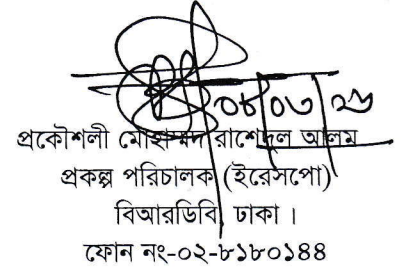 ০৮/০৩/২৬
প্রকৌশলী মোহাম্মদ রাশেদুল আলম
প্রকল্প পরিচালক (ইরেসপো)
বিআরডিবি, ঢাকা ।
ফোন নং-০২-৮১৮০১৪৪